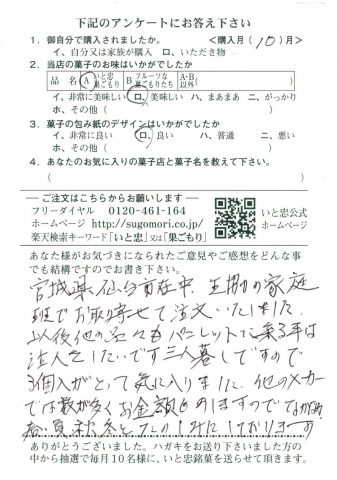 下記のアンケートにお答え下さい
1．御自分で購入されましたか。 ＜購入月（10）月＞
イ、自分又は家族が購入 ロ、いただき物
2．当店の菓子のお味はいかがでしたか
品 名 A いと忠 巣ごもり B フルーツな 巣ごもりたち A・B 以外（ ）
イ、非常に美味しい ロ、美味しい ハ、まあまあ ニ、がっかり
ホ、その他（ ）
3．菓子の包み紙のデザインはいかがでしたか
イ、非常に良い ロ、良い ハ、普通 ニ、悪い
ホ、その他（ ）
4．あなたのお気に入りの菓子店と菓子名を教えて下さい。
（ ）
ご注文はこちらからお願いします
フリーダイヤル 0120-461-164
ホームページ http://sugomori.co.jp/
楽天検索キーワード「いと忠」又は「巣ごもり」
いと忠公式
ホームページ
あなた様がお気づきになられたご意見やご感想をどんな事
でも結構ですのでお書き下さい。
宮城県仙台市在中 の家庭
でお取り寄せて注文いたしました
以後他の品々もパンレットで
注文をしたいです三人暮しですので
3個入がとって気に入りました 他のメーカー
では数が多くお金額 のしますので
春・夏 秋冬とたのしみにしております
ありがとうございました。ハガキをお送り下さいました方の
中から抽選で毎月10名様に、いと忠銘菓を送らせて頂きます。